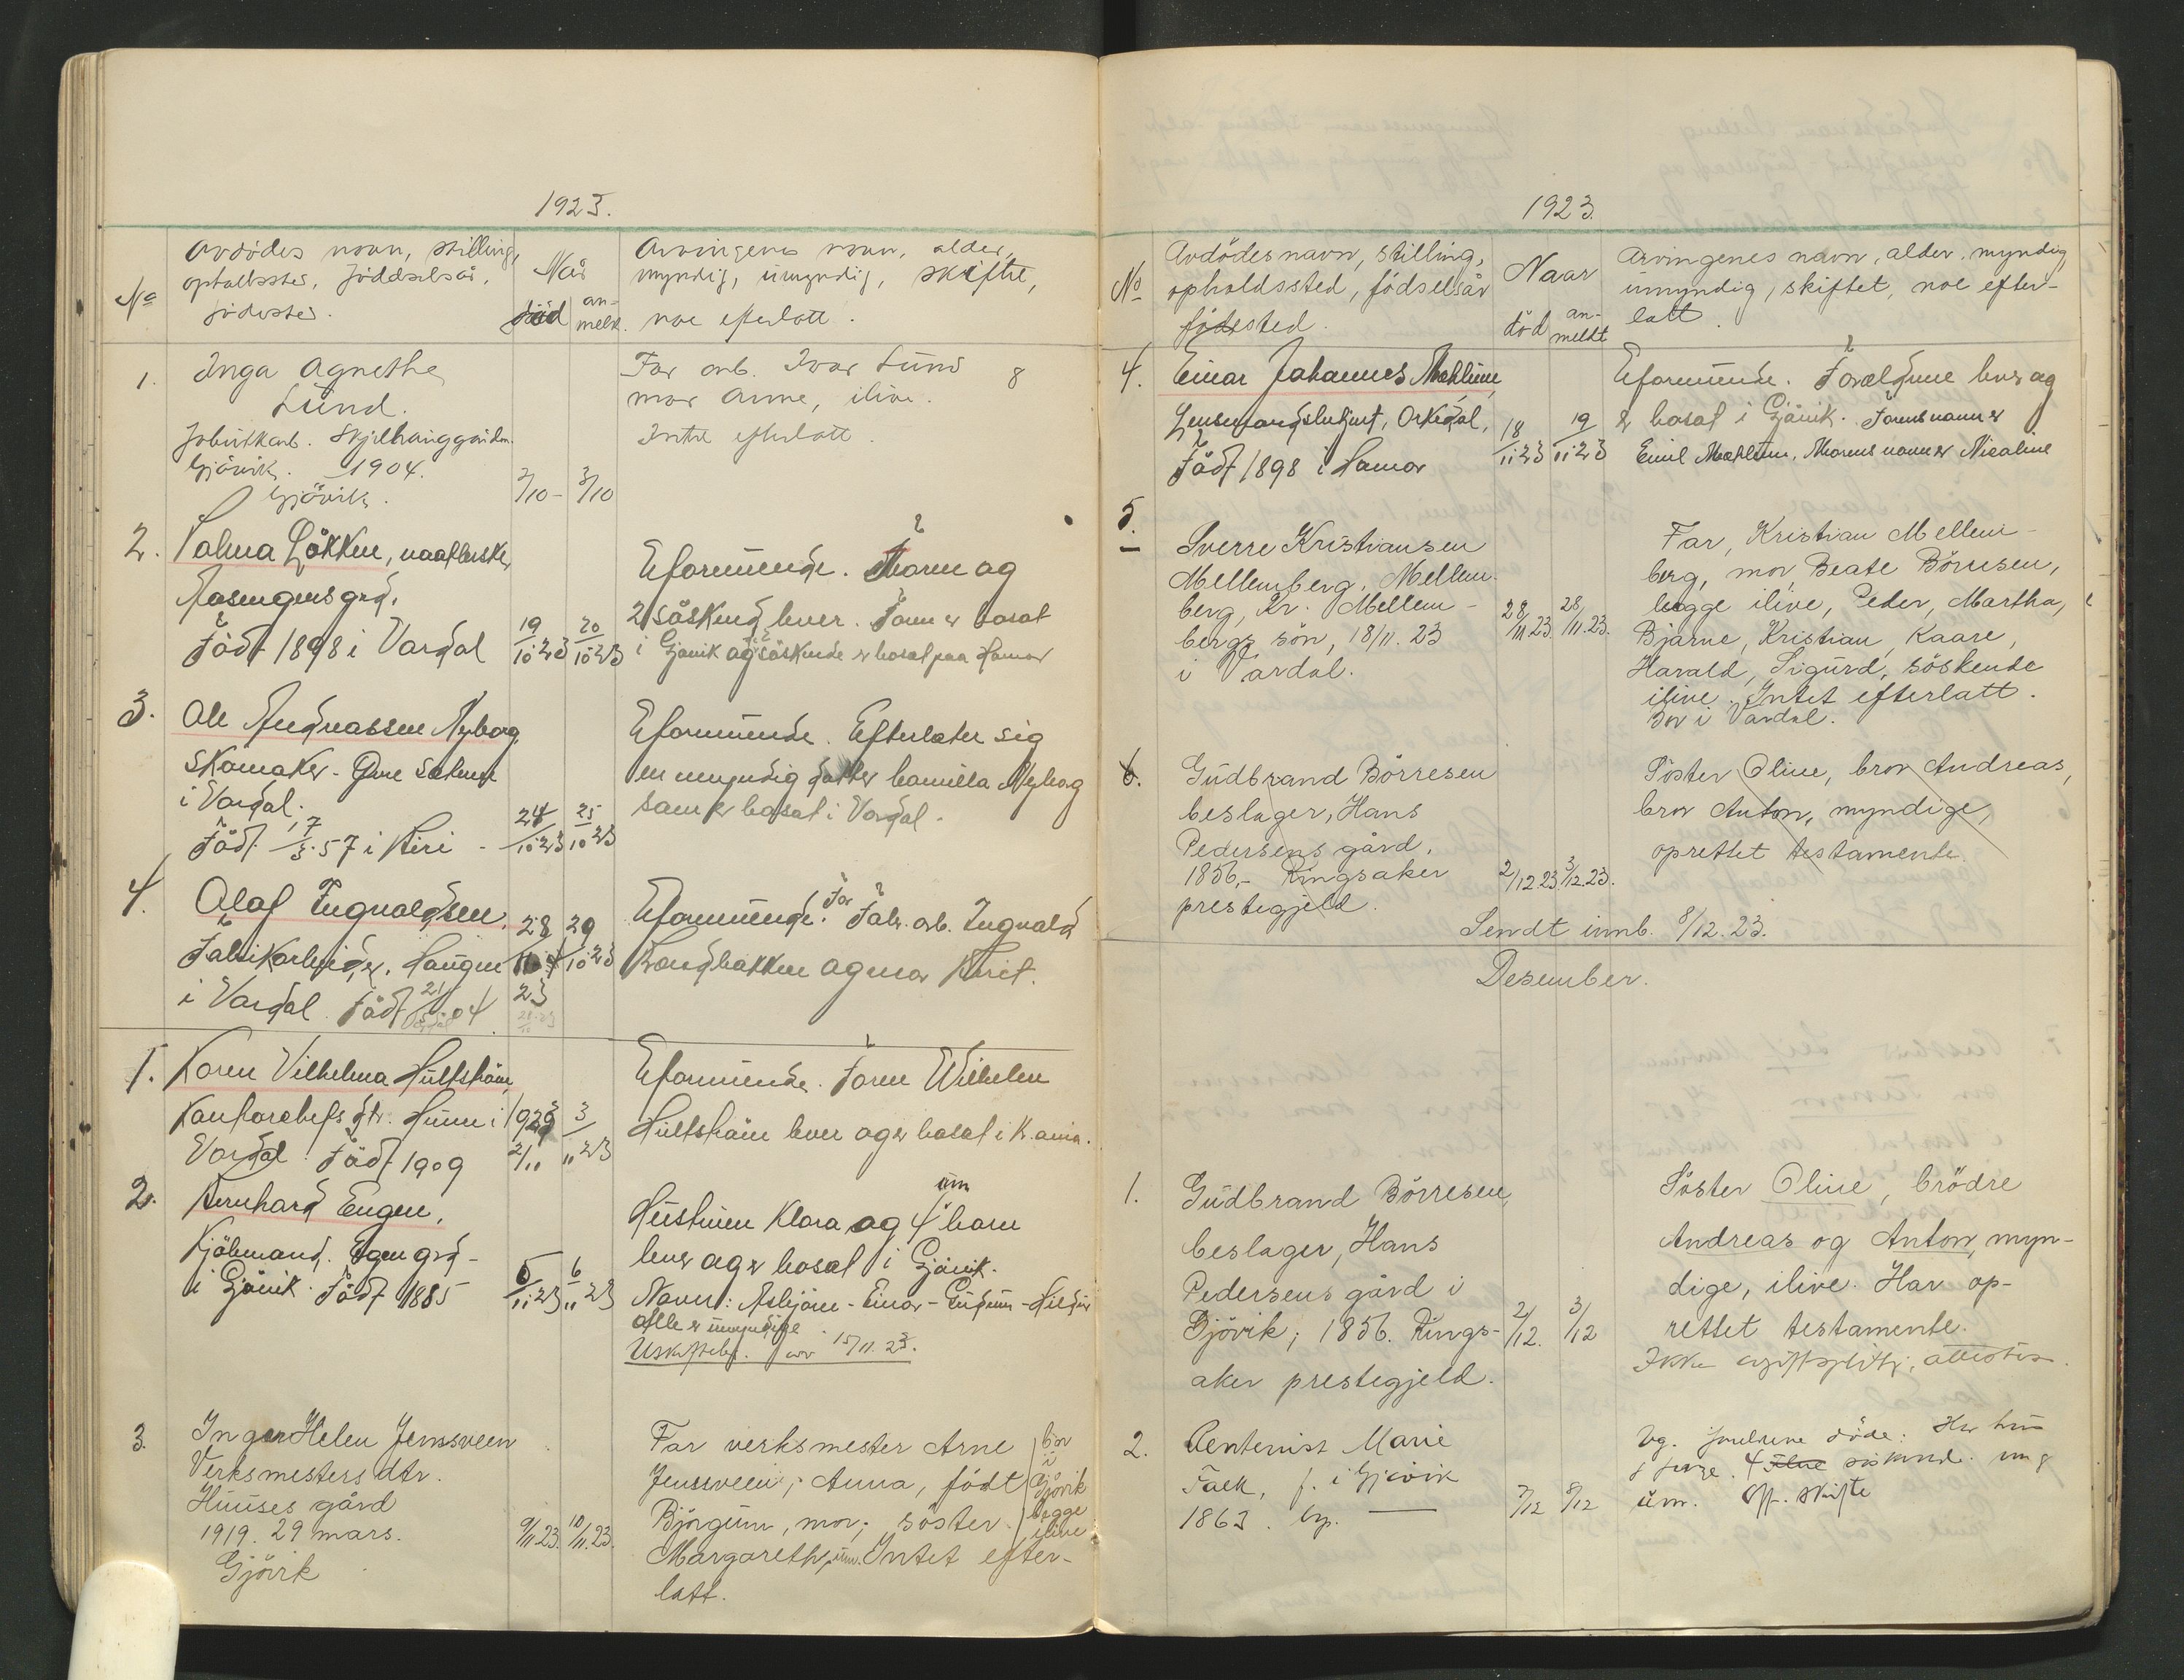 1923.
No
Avdödes navn, stilling,
opholdssted, föddselsår,
födested.
Når
död
an-
meldt.
Arvingenes navn, alder,
myndig, umyndig, skifte,
noe efterlatt.
1.
Inga Agnethe
Lund.
Fabrikkarb.
Gjövik. 1904.
Gjövik.
2/10 - 3/10
Far arb. Ivar Lund
mor Anne, ilive.
Intet efterlatt.
8
2.
Palma Lökken,
Födt 1898 i Vardal
19/10 23
20/10 23
Eformuende. Moren og
2 söskend lever. Faren er bosat
i Gjövik og söskende er bosat paa Hamar
3.
Ole Andreassen Nyborg
Skomaker.
i Vardal.
Födt 17/3.57 i Biri
24/10 23
25/10 23
Eformuende. Efterlater sig
en myndig datter Camilla Nyborg
som er bosat i Vardal.
4.
Olaf Ingvaldsen,
Fabrikarbeider. Haugen
i Vardal. Födt 04
28
23
29/10 23
Eformuende. Far Fabr. arb. Ingvald
og mor Berit.
1.
Karen Vilhelma Hultström,
Kontorchefs dtr. Hunn i
Vardal. Födt 1909
1923
2/11
3/11 23
Eformuende. Faren Wilhelm
Hultström lever og er bosat i K.ania.
2.
Bernhard Engen,
Kjöbmand. Egen grd
i Gjövik. Födt 1885
5/11 23
6/11 23
Hustruen Klara og 4 um barn
lever og er bosat i Gjövik.
Navn: Asbjörn - Einar - Gudrun -
alle er umyndige
15/11. 23.
3.
Inger Helen Jenssveen
Verksmesters dtr.
Hunses gård
1919. 29 mars.
Gjövik
9/11.23.
10/11.23.
Far verksmester Arne
Jenssveen; Anna, födt
Björgum, mor; söster
Margareth, um. Intet efter-
latt.
bor
i
Gjövik
begge
ilive
1923.
No
Avdödes navn, stilling,
opholdssted, födselsår
födested.
Naar
död
an-
meldt
Arvingenes navn, alder, myndig
umyndig, skiftet, noe efter-
latt.
4.
Einar Johannes Mæhlum,
Lensmandsbetjent, Orkedal,
Födt 1898 i Hamar
18/11 23
19/11 23
Eformuende. Forældrene lever og
er bosat i Gjövik. Farens navn er
Emil Mæhlum, Morens navn er Nicoline
5.
Sverre Kristiansen
Mellemberg, Mellem-
berg, Kr. Mellem-
bergs sön, 18/11. 23
i Vardal.
28/11 23.
28/11.23.
Far, Kristian Mellem-
berg, mor Beate Börresen,
begge ilive, Peder, Martha,
Bjarne, Kristian, Kaare,
Harald, Sigurd, söskende
ilive. Intet efterlatt.
Bor i Vardal.
6.
Gudbrand Börresen
beslager, Hans
Pedersens gård,
1856,- Ringsaker
prestegjeld.
2/12 23.
3/12.23.
Söster Oline, bror Andreas,
bror Anton, myndige,
oprettet testamente.
Sendt innb. 8/12.23.
Desember.
1.
Gudbrand Börresen,
beslager, Hans
Pedersens gård i
Gjövik; 1856. Rings-
aker prestegjeld.
2/12.
3/12
Söster Oline, brödre
Andreas og Anton, myn-
dige, ilive. Har op-
rettet testamente.
Ikke
2.
Rentenist Marie
Falk, f. i Gjövik
1863.
7/12
8/12
döde.
4 söskend.
um. Off. skifte